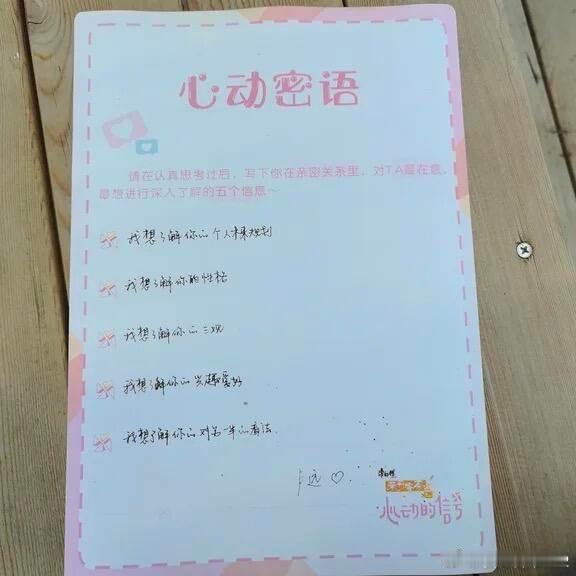 心动密语
请在认真思考过后，写下你在亲密关系里，对TA最在意、
最想进行深入了解的五个信息~
我想了解你的个人未来规划
我想了解你的性格
我想了解你的三观
我想了解你的兴趣爱好
我想了解你的对另一半的看法
卜远♡
心动的信号